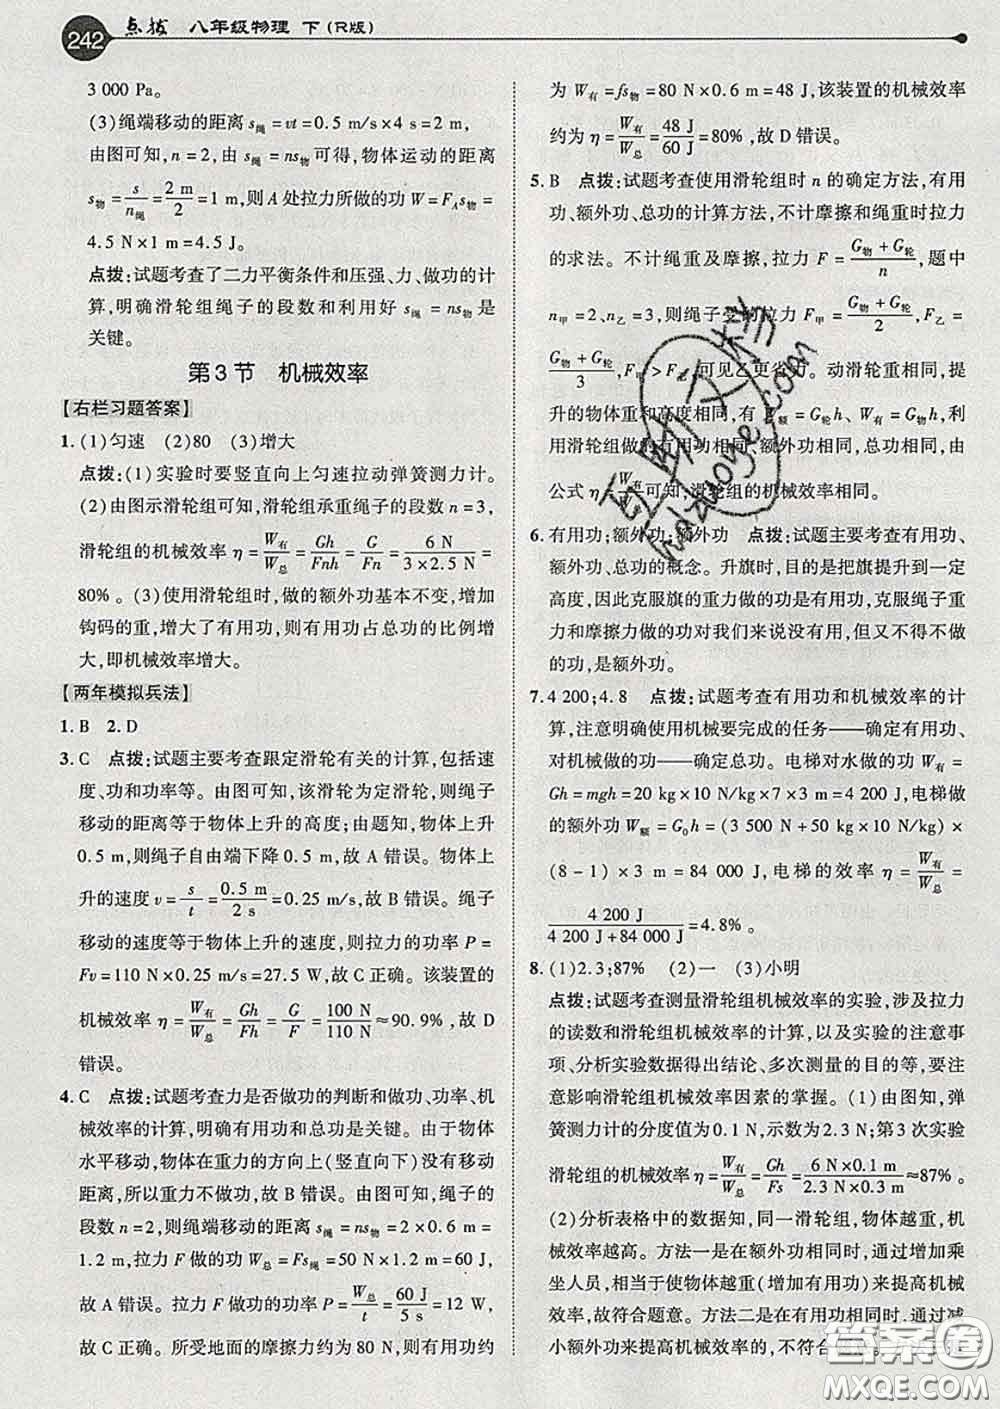 242 点拨 八年级物理 下(R版)
3 000 Pa。
(3)绳端移动的距离 s绳=vt=0.5 m/s×4 s=2 m,
由图可知,n=2,由 s绳=ns物可得,物体运动的距离
s物=s/n绳=2 m/2=1 m,则 A 处拉力所做的功 W=F_A s物=
4.5 N×1 m=4.5 J。
点拨:试题考查了二力平衡条件和压强、力、做功的计
算,明确滑轮组绳子的段数和利用好 s绳=ns物 是
关键。
第3节 机械效率
【右栏习题答案】
1.(1)匀速 (2)80 (3)增大
点拨:(1)实验时要竖直向上匀速拉动弹簧测力计。
(2)由图示滑轮组可知,滑轮组承重绳子的段数 n=3,
滑轮组的机械效率 η=W有/W总=Gh/Fnh=G/Fn=6 N/3×2.5 N=
80%。(3)使用滑轮组时,做的额外功基本不变,增加
钩码的重,增大了有用功,则有用功占总功的比例增
大,即机械效率增大。
【两年模拟兵法】
1.B 2.D
3.C 点拨:试题主要考查跟定滑轮有关的计算,包括速
度、功和功率等。由图可知,该滑轮为定滑轮,则绳子
移动的距离等于物体上升的高度;由题知,物体上升
0.5 m,则绳子自由端下降0.5 m,故 A 错误。物体上
升的速度 v=s/t=0.5 m/2 s,故 B 错误。绳子
移动的速度等于物体上升的速度,则拉力的功率 P=
Fv=110 N×0.25 m/s=27.5 W,故 C 正确。该装置的
机械效率 η=W有/W总=Gh/Fh=G/F=100 N/110 N≈90.9%,故 D
错误。
4.C 点拨:试题考查力是否做功的判断和做功、功率、机
械效率的计算,明确有用功和总功是关键。由于物体
水平移动,物体在重力的方向上(竖直向下)没有移动
距离,所以重力不做功,故 B 错误。由图可知,绳子的
段数 n=2,则绳端移动的距离 s绳=ns物=2×0.6 m=
1.2 m,拉力 F 做的功 W总=Fs绳=50 N×1.2 m=60 J,
故 A 错误。拉力 F 做功的功率 P=W总/t=60 J/5 s=12 W,
故 C 正确。所受地面的摩擦力约为 80 N,则有用功约
为 W有=fs物=80 N×0.6 m=48 J,该装置的机械效率
约为 η=W有/W总=48 J/60 J=80%,故 D 错误。
5.B 点拨:试题考查使用滑轮组时 n 的确定方法,有用
功、额外功、总功的计算方法,不计摩擦和绳重时拉力
的求法。不计绳重及摩擦,拉力 F=G物+G轮/n,题中
n甲=2、n乙=3,则绳子受的拉力 F甲=G物+G轮/2,F乙=
G物+G轮/3,F甲>F乙,可见乙更省力。动滑轮重相同,提
升的物体重和高度相同,有 W额=G轮h、W有=G物h,利
用滑轮组做的有用功相同、额外功相同,总功相同,由
公式 η=W有/W总可知,滑轮组的机械效率相同。
6.有用功;额外功;额外功 点拨:试题主要考查有用功、
额外功、总功的概念。升旗时,目的是把旗提升到一定
高度,因此克服旗的重力做的功是有用功,克服绳子重
力和摩擦力做的功对我们来说没有用,但又不得不做
的功,是额外功。
7.4 200;4.8 点拨:试题考查有用功和机械效率的计
算,注意明确使用机械要完成的任务——确定有用功、
对机械做的功——确定总功。电梯对水做的功 W有=
Gh=mgh=20 kg×10 N/kg×7×3 m=4 200 J,电梯做
的额外功 W额=G₀h=(3 500 N+50 kg×10 N/kg)×
(8-1)×3 m=84 000 J,电梯的效率 η=W有/W总=
4 200 J/4 200 J+84 000 J=4.8%。
8.(1)2.3;87% (2)一 (3)小明
点拨:试题考查测量滑轮组机械效率的实验,涉及拉力
的读数和滑轮组机械效率的计算,以及实验的注意事
项、分析实验数据得出结论、多次测量的目的等,要注
意影响滑轮组机械效率因素的掌握。(1)由图知,弹
簧测力计的分度值为0.1 N,示数为2.3 N;第3次实验
滑轮组的机械效率 η=W有/W总=Gh/Fs=6 N×0.1 m/2.3 N×0.3 m≈87%。
(2)分析表格中的数据知,同一滑轮组,物体越重,机
械效率越高。方法一是在额外功相同时,通过增加乘
坐人员,相当于使物体越重(增加有用功)来提高机械
效率,故符合题意。方法二是在有用功相同时,通过减
小额外功来提高机械效率的,不符合
答案圈
MXQE.COM
hdzuoye.com